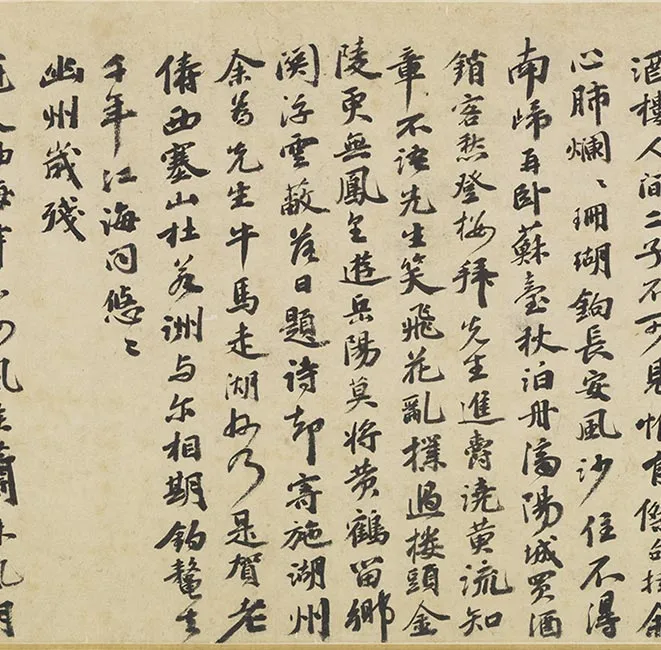 酒樓人間二子不可見惟有
心肺爛〻珊瑚鉤長安風沙住不得
南歸再卧蘇臺秋泊舟濟陽城買酒
銷客愁登樓拜先生進酹澆黄流知
章不語先生笑飛花亂撲過樓頭金
陵更無鳳至遊岳陽莫將黄鶴留鄉
関浮雲蔽落日題詩却寄施湖州
余為先生牛馬走湖州乃是賀老
儔西塞山杜若洲与尔相期釣鰲去
千年江海同悠〻
幽州歲殘